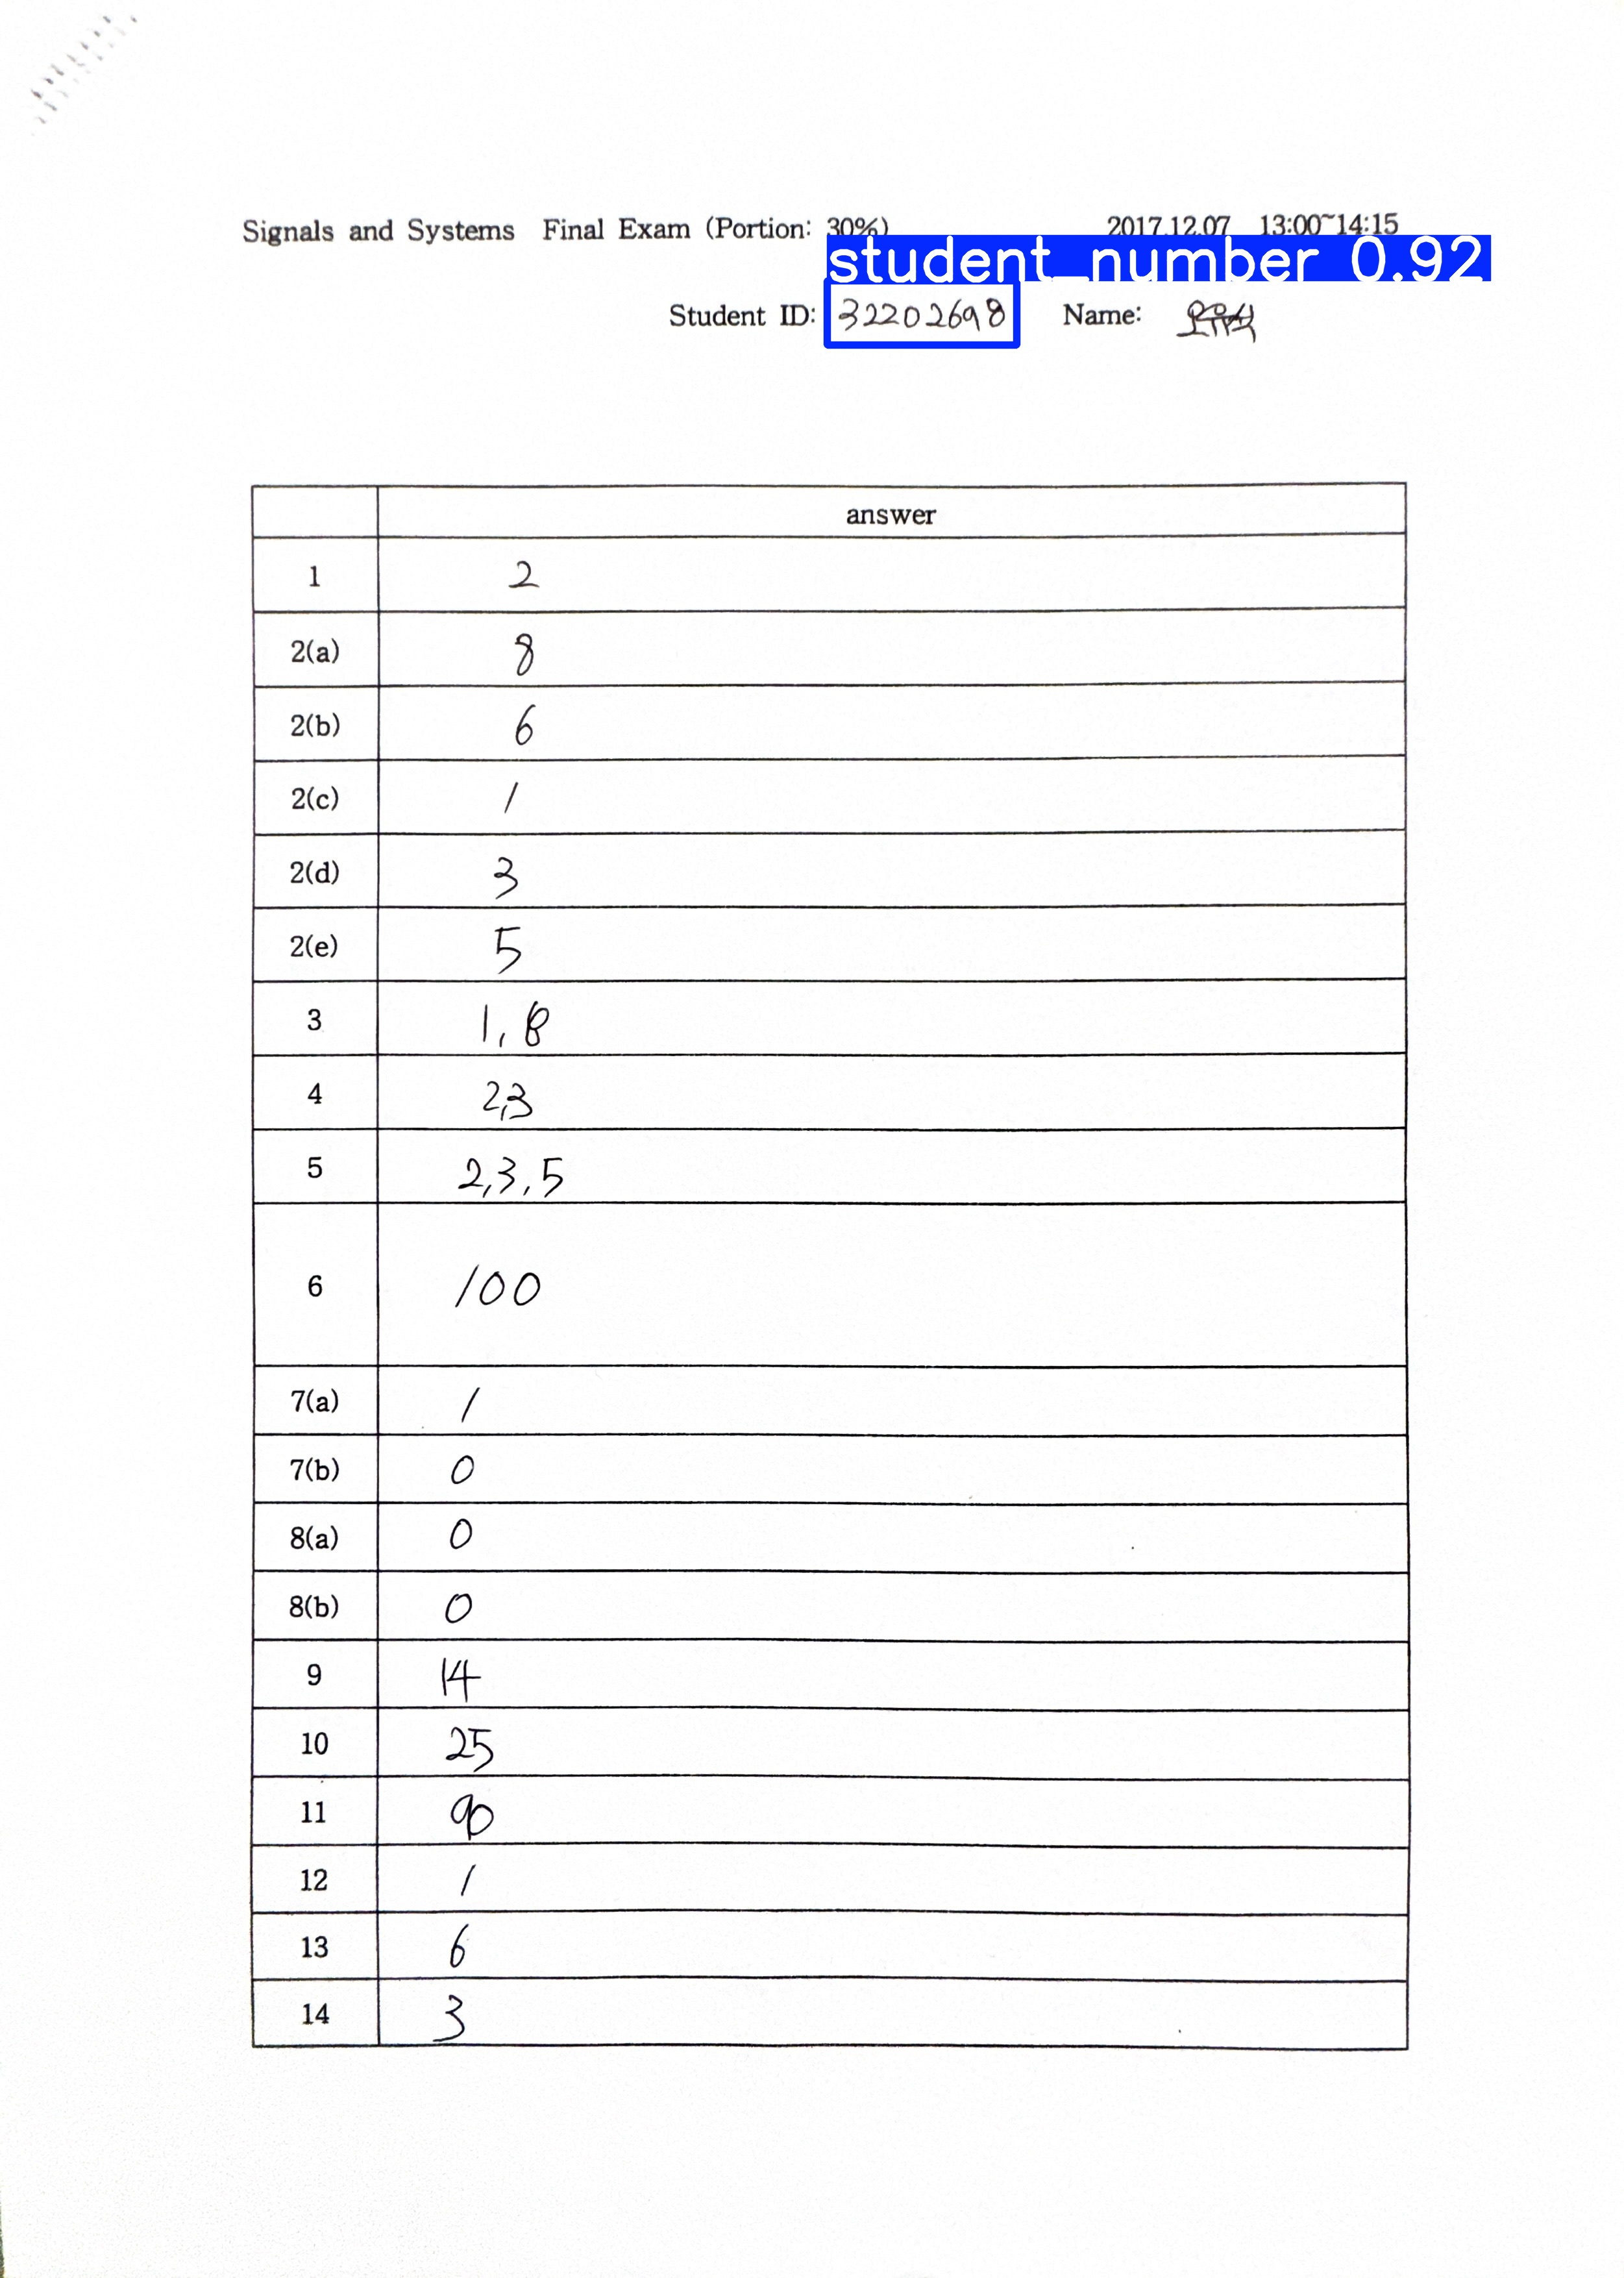 Signals and Systems Final Exam (Portion: 30%) 2017.12.07 13:00~14:15
student_number 0.92
Student ID: 32202698 Name:
answer
1 2
2(a) 8
2(b) 6
2(c) 1
2(d) 3
2(e) 5
3 1, 8
4 2,3
5 2,3,5
6 100
7(a) 1
7(b) 0
8(a) 0
8(b) 0
9 14
10 25
11 90
12 1
13 6
14 3